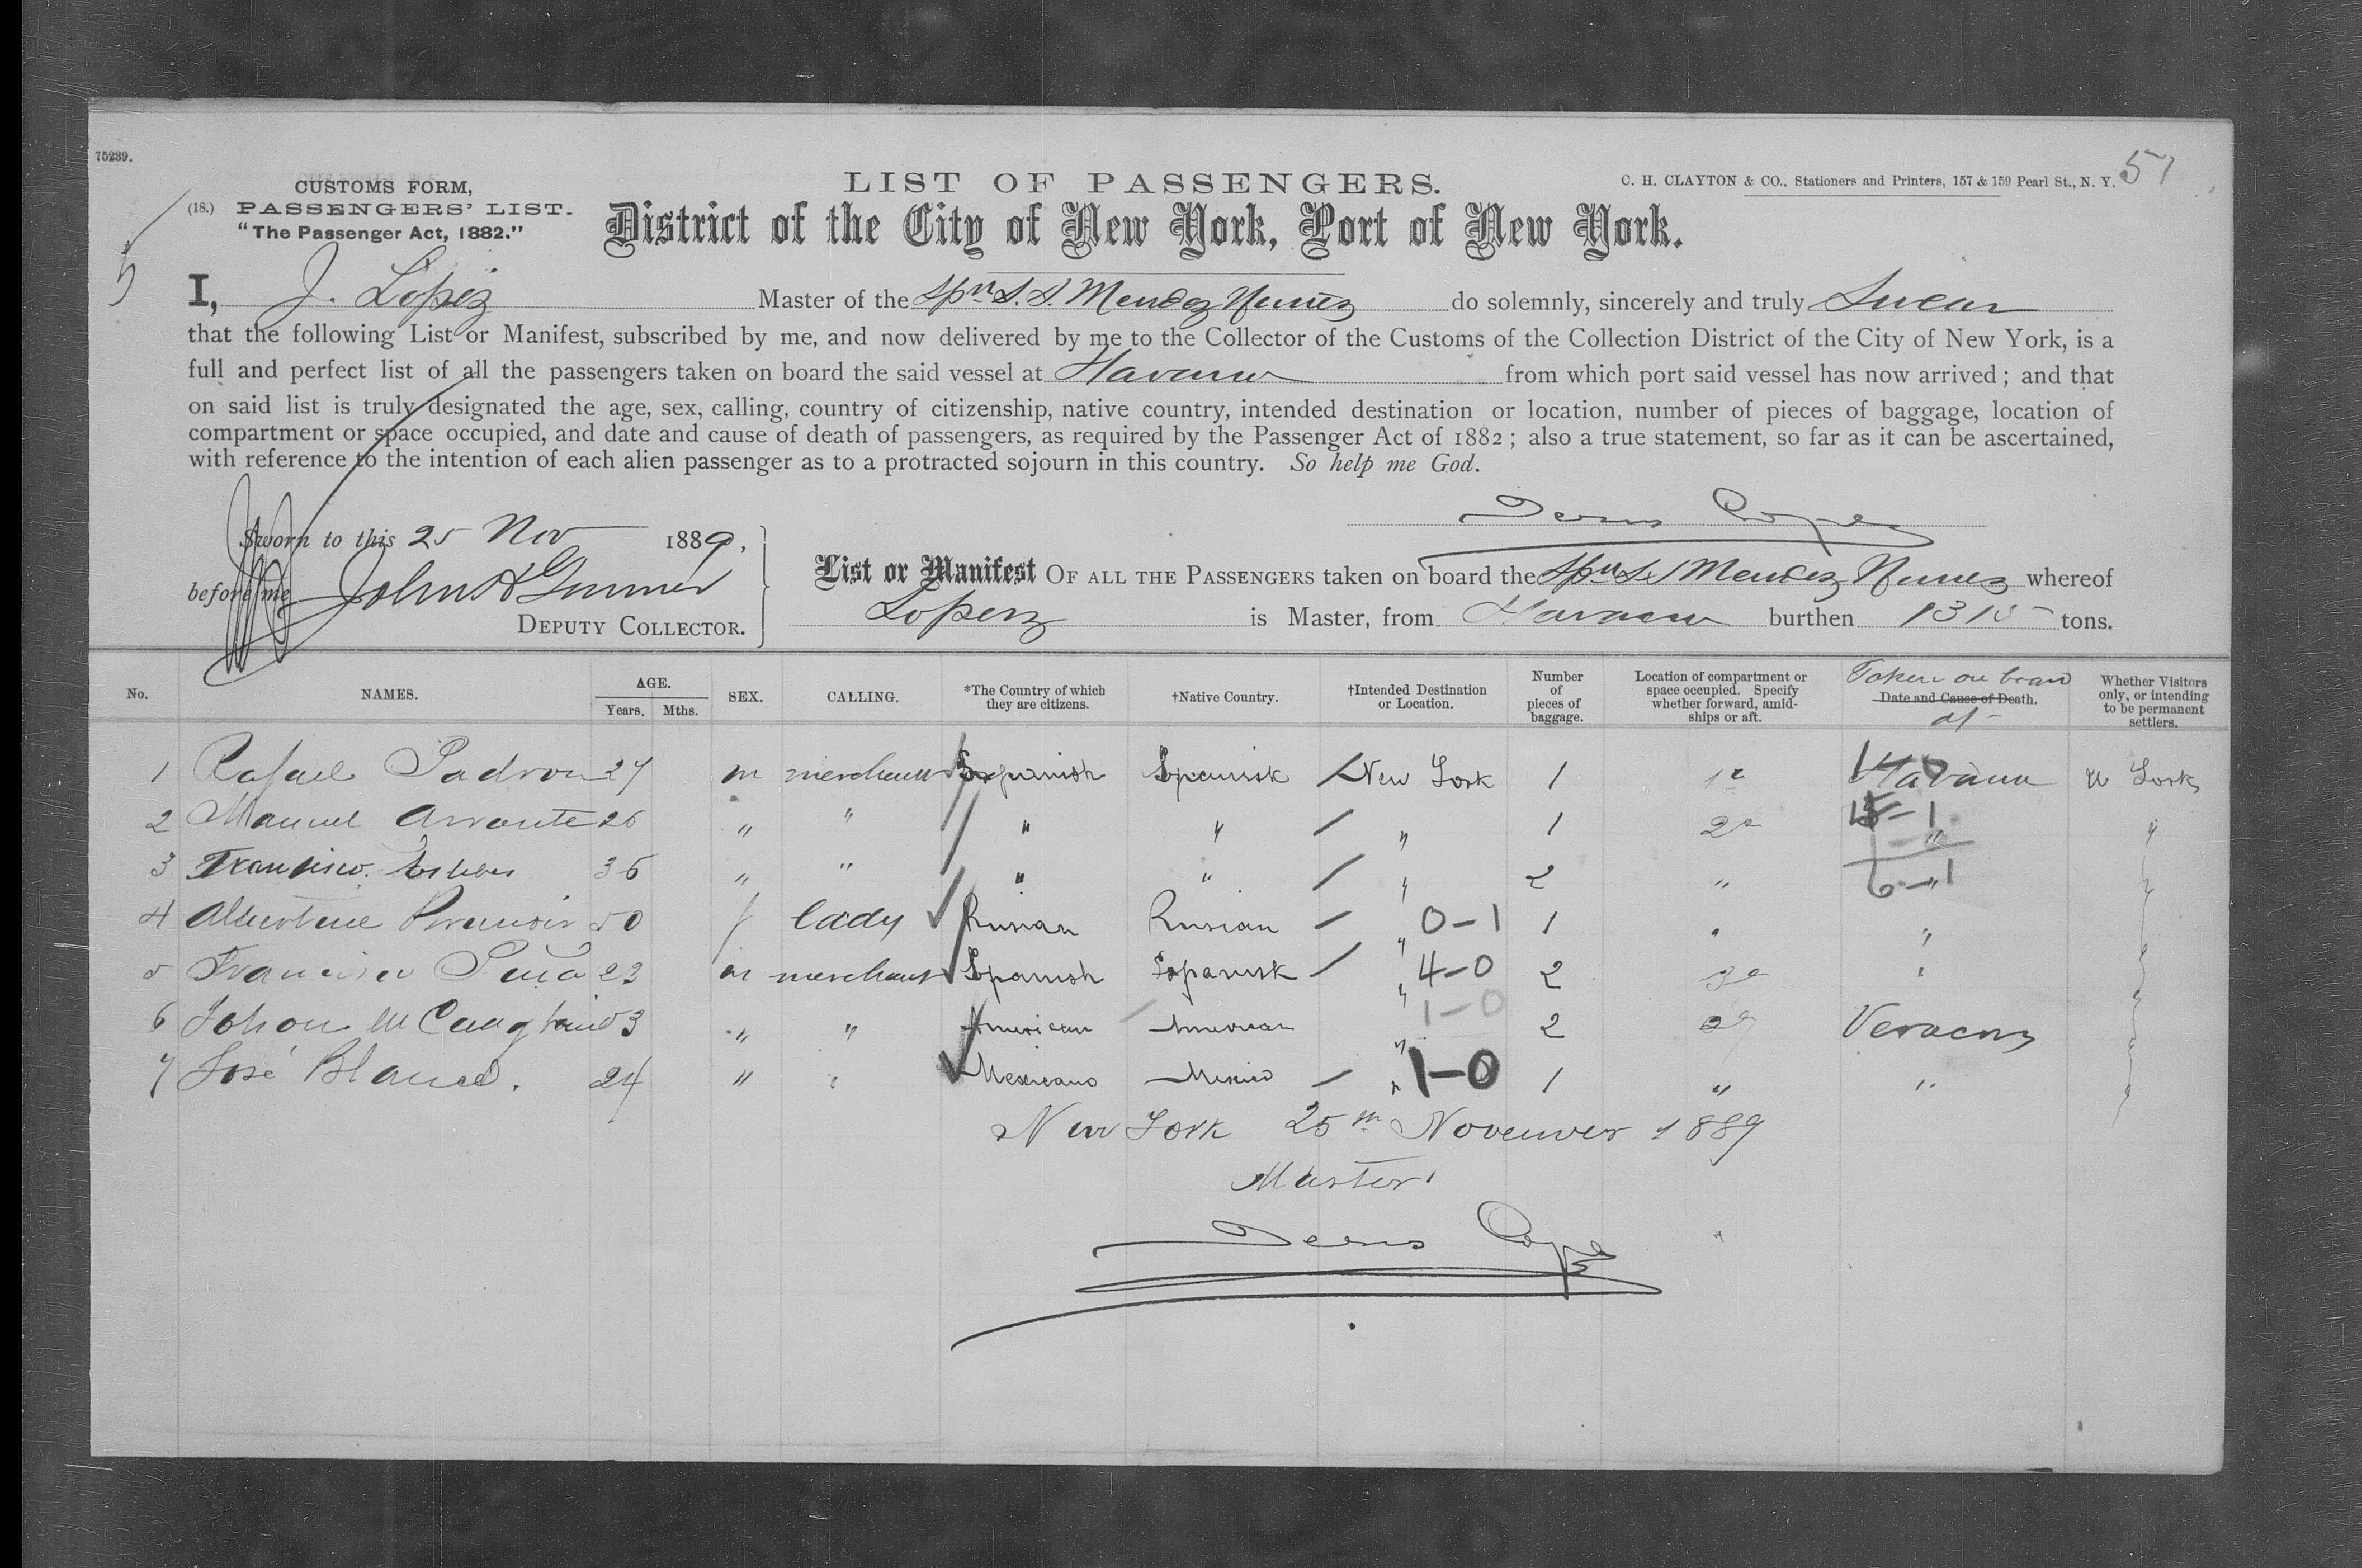 75239.
51
CUSTOMS FORM,
(18.) PASSENGERS' LIST.
"The Passenger Act, 1882."
LIST OF PASSENGERS.
C. H. CLAYTON & CO., Stationers and Printers, 157 & 159 Pearl St., N. Y.
District of the City of New York, Port of New York.
I, J. Lopez Master of the Spn S.S. Mendez Nunez do solemnly, sincerely and truly Swear
that the following List or Manifest, subscribed by me, and now delivered by me to the Collector of the Customs of the Collection District of the City of New York, is a
full and perfect list of all the passengers taken on board the said vessel at Havana from which port said vessel has now arrived; and that
on said list is truly designated the age, sex, calling, country of citizenship, native country, intended destination or location, number of pieces of baggage, location of
compartment or space occupied, and date and cause of death of passengers, as required by the Passenger Act of 1882; also a true statement, so far as it can be ascertained,
with reference to the intention of each alien passenger as to a protracted sojourn in this country. So help me God.
Sworn to this 25 Nov 1889,
before me John
DEPUTY COLLECTOR.
List or Manifest OF ALL THE PASSENGERS taken on board the Spn SS Mendez Nunez whereof
Lopez is Master, from Havana burthen 1315 tons.
No. NAMES. AGE. Years. Mths. SEX. CALLING. *The Country of which they are citizens. †Native Country. †Intended Destination or Location. Number of pieces of baggage. Location of compartment or space occupied. Specify whether forward, amidships or aft. Taken on board Date and Cause of Death. at Whether Visitors only, or intending to be permanent settlers.
1 Rafael Padron 27 m merchant Spanish Spanish New York 1 1a Havana N York
2 Manuel 26 " " " " " 1 2a " "
3 Francisco 36 " " " " " 2 " " "
4 Albertine 50 f lady Rusian Rusian " 0-1 1 " " "
5 Francisco 23 m merchant Spanish Spanish " 4-0 2 3a " "
6 Johon 53 " " American American " 1-0 2 Veracruz "
7 José Blanco. 24 " " Mexicano Mexico " 1-0 1 " " "
New York 25th November 1889
Master